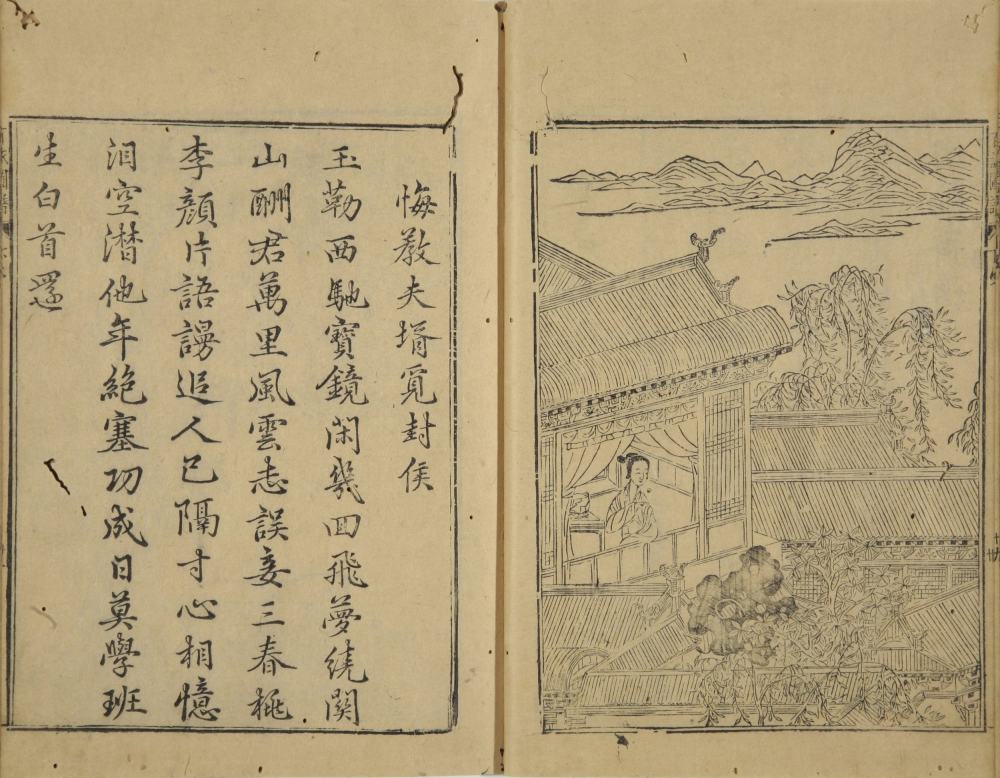 悔教夫壻覓封侯
玉勒西馳寶鏡閑幾回飛夢繞關
山酬君萬里風雲志誤妾三春桃
李顔片語謾追人已隔寸心相憶
淚空潛他年絶塞功成日莫學班
生白首還